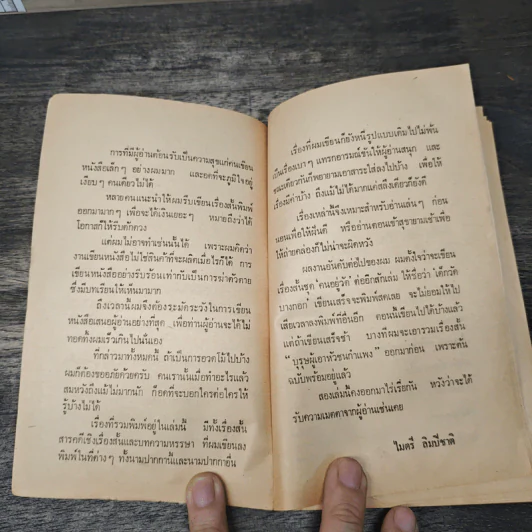 การที่มีผู้อ่านต้อนรับเป็นความสุขแก่คนเขียน
หนังสือเล็กๆ อย่างผมมาก และอดที่จะภูมิใจอยู่
เงียบๆ คนเดียวไม่ได้
หลายคนแนะนำให้ผมรีบเขียนเรื่องสั้นพิมพ์
ออกมามากๆ เพื่อจะได้เงินเยอะๆ หมายถึงว่าได้
โอกาสก็ให้รีบตักตวง
แต่ผมไม่อาจทำเช่นนั้นได้ เพราะผมคิดว่า
งานเขียนหนังสือไม่ใช่สินค้าที่จะผลิตเมื่อไรก็ได้ การ
เขียนหนังสืออย่างรีบร้อนเท่ากับเป็นการฆ่าตัวตาย
ซึ่งมีบทเรียนให้เห็นมามาก
ถึงเวลานี้ผมจึงต้องระมัดระวังในการเขียน
หนังสือเสนอผู้อ่านอย่างที่สุด เพื่อท่านผู้อ่านจะได้ไม่
ทอดทิ้งผมเร็วเกินไปนั่นเอง
ที่กล่าวมาทั้งหมดนี้ ถ้าเป็นการอวดโม้ไปบ้าง
ผมก็ต้องขออภัยด้วยครับ คนเรานั้นเมื่อทำอะไรแล้ว
สมหวังถึงแม้ไม่มากนัก ก็อดที่จะบอกใครต่อใครให้
รู้บ้างไม่ได้
เรื่องที่รวมพิมพ์อยู่ในเล่มนี้ มีทั้งเรื่องสั้น
สารคดีเชิงเรื่องสั้นและบทความหรรษา ที่ผมเขียนลง
พิมพ์ในที่ต่างๆ ทั้งนามปากกานี้และนามปากกาอื่น
เรื่องที่ผมเขียนก็ยังหนีรูปแบบเดิมไปไม่พ้น
เป็นเรื่องเบาๆ แทรกอารมณ์ขันให้ผู้อ่านสนุก และ
ขณะเดียวกันก็พยายามเอาสาระใส่ลงไปบ้าง เพื่อให้
เรื่องมีค่าบ้าง ถึงแม้ไม่ได้มากแค่สลึงเดียวก็ยังดี
เรื่องเหล่านี้จึงเหมาะสำหรับอ่านเล่นๆ ก่อน
นอนเพื่อให้ฝันดี หรืออ่านตอนเข้าสุขายามเช้าเพื่อ
ให้ถ่ายคล่องก็ไม่น่าจะผิดหวัง
ผลงานอันดับต่อไปของผม ผมตั้งใจว่าจะเขียน
เรื่องสั้นชุด "คนอยู่วัด" ต่ออีกสักเล่ม ให้ชื่อว่า "เด็กวัด
บางกอก" เขียนเสร็จจะพิมพ์สดเลย จะไม่ยอมให้ไป
เสียเวลาลงพิมพ์ที่อื่นอีก ตอนนี้เขียนไปได้บ้างแล้ว
แต่ถ้าเขียนเสร็จช้า บางทีผมจะเอารวมเรื่องสั้น
"บุรุษผู้เอาหัวชนกำแพง" ออกมาก่อน เพราะต้น
ฉบับพร้อมอยู่แล้ว
สองเล่มนี้คงออกมาไร่เรี่ยกัน หวังว่าจะได้
รับความเมตตาจากผู้อ่านเช่นเคย
ไมตรี ลิมปิชาติ